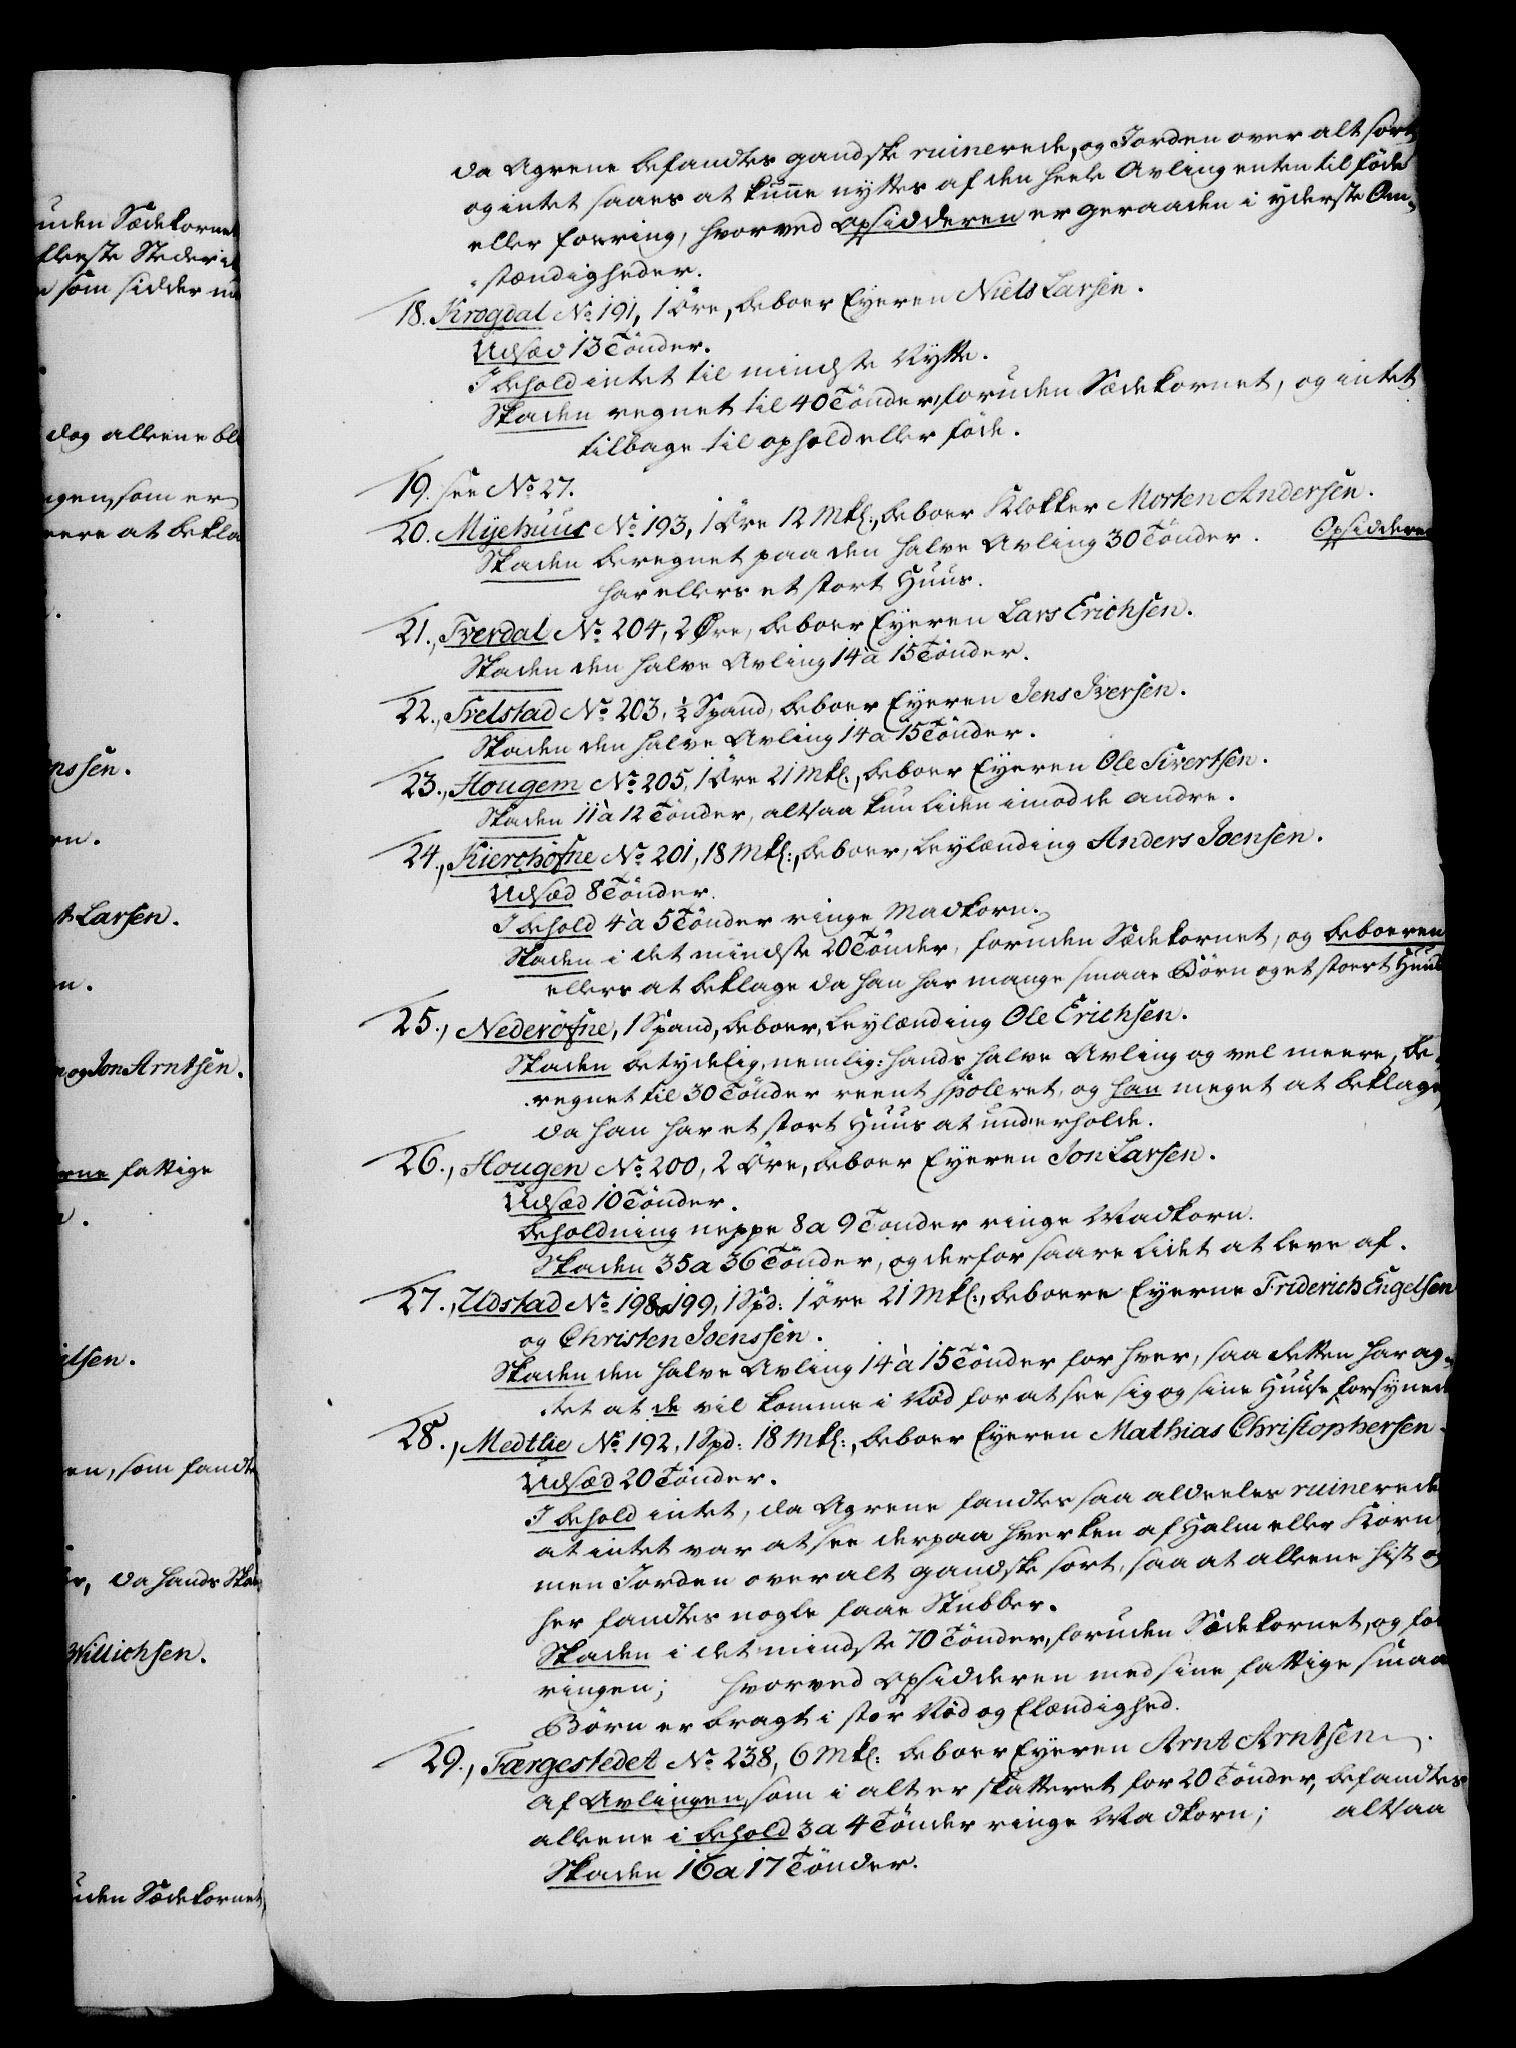 uden Sædekornet
fleeste Steder i
som sidder
dog alleene
ngen, som er
meere at bekla
nssen.
en.
t Larsen.
en.
og Jon Arntsen.
erne fattige
tsen.
en, som fandt
da hands Ska
Willichsen.
uden Sædekornet,
da Agrene befandtes gandske ruinerede, og Jorden over alt sort,
og intet saaes at kunne nyttes af den heele Avling enten til föde
eller foering, hvorved Opsidderen er geraaden i yderste Om-
-stændigheder.
18. Krogdal No 191, 1 Öre, beboer Eyeren Niels Larsen.
Udsæd 13 Tönder.
I behold intet til mindste Nytte.
Skaden regnet til 40 Tönder, foruden Sædekornet, og intet
tilbage til ophold eller föde.
19. see No 27.
20. Myehuus No 193, 1 Öre 12 Mkl:, beboer Klokker Morten Andersen.
Skaden beregnet paa den halve Avling 30 Tönder. Opsidderen
har ellers et stort Huus.
21., Tverdal No 204, 2 Øre, beboer Eyeren Lars Erichsen.
Skaden den halve Avling 14 à 15 Tönder.
22., Trelstad No 203, ½ Spand, beboer Eyeren Jens Iversen.
Skaden den halve Avling 14 a 15 Tönder.
23., Hougem No 205, 1 Öre 21 Mkl:, beboer Eyeren Ole Sivertsen.
Skaden 11 à 12 Tönder, altsaa kun liden imod de andre.
24., Kierchöfne No 201, 18 Mkl:, beboer, Leylænding Anders Joensen.
Udsæd 8 Tönder.
I behold 4 à 5 Tönder ringe Madkorn.
Skaden i det mindste 20 Tönder, foruden Sædekornet, og beboeren
ellers at beklage da han har mange smaae Börn og et stoert Huus
25., Nederöfne, 1 Spand, beboer, Leylænding Ole Erichsen.
Skaden betydelig, nemlig: hands halve Avling og vel meere, be-
-regnet til 30 Tönder reent spoleret, og han meget at beklage,
da han har et stort Huus at underholde.
26., Hougen No 200, 2 Öre, beboer Eyeren Jon Larsen.
Udsæd 10 Tönder.
Beholdning neppe 8 a 9 Tönder ringe Madkorn.
Skaden 35 a 36 Tönder, og derfor saare lidet at leve af.
27., Udstad No 198 & 199, 1 Spd: 1 öre 21 Mkl:, beboere Eyerne Friderich Engelsen
og Christen Joenssen.
Skaden den halve Avling 14 à 15 Tönder for hver, saa dette har ag-
-tet at de vil komme i Nöd for at see sig og sine Huuse forsynede
28., Medtlie No 192, 1 Spd: 18 Mkl:, beboer Eyeren Mathias Christophersen.
Udsæd 20 Tönder.
I behold intet, da Agrene fandtes saa aldeeles ruinerede
at intet var at see derpaa hverken af Halm eller Korn
men Jorden overalt gandske sort, saa at alleene hist og
her fandtes nogle faae Stubber.
Skaden i det mindste 70 Tönder, foruden Sædekornet, og foe
ringen; hvorved Opsidderen med sine fattige smaa
Börn er bragt i stor Nöd og Elændighed.
29., Færgestedet No 238, 6 Mkl: beboer Eyeren Arnt Arntsen.
Af Avlingen, som i alt er skatteret for 20 Tönder, befandtes
alleene i behold 3 a 4 Tönder ringe Madkorn; altsaa
Skaden 16 a 17 Tönder.